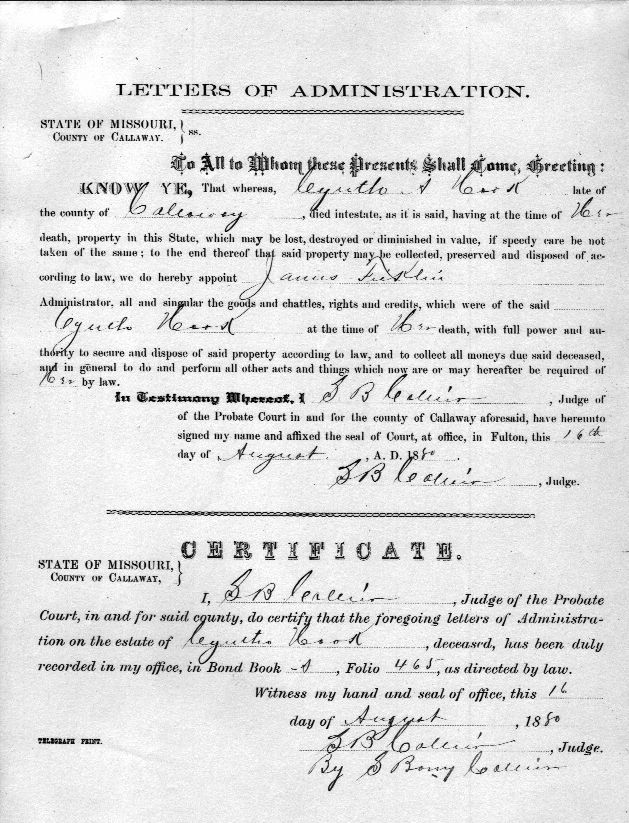 LETTERS OF ADMINISTRATION.
STATE OF MISSOURI, } ss.
COUNTY OF CALLAWAY.
To All to Whom these Presents Shall Come, Greeting:
KNOW YE, That whereas, Cyntha A Hook late of
the county of Callaway, died intestate, as it is said, having at the time of Her
death, property in this State, which may be lost, destroyed or diminished in value, if speedy care be not
taken of the same; to the end thereof that said property may be collected, preserved and disposed of ac-
cording to law, we do hereby appoint James
Administrator, all and singular the goods and chattles, rights and credits, which were of the said
Cyntha Hook at the time of Her death, with full power and au-
thority to secure and dispose of said property according to law, and to collect all moneys due said deceased,
and in general to do and perform all other acts and things which now are or may hereafter be required of
Her by law.
In Testimony Whereof, I S B Collier, Judge of
of the Probate Court in and for the county of Callaway aforesaid, have hereunto
signed my name and affixed the seal of Court, at office, in Fulton, this 16th
day of August, A. D. 1880.
S B Collier, Judge.
CERTIFICATE.
STATE OF MISSOURI, }
COUNTY OF CALLAWAY, }
I, S B Collier, Judge of the Probate
Court, in and for said county, do certify that the foregoing letters of Administra-
tion on the estate of Cyntha Hook, deceased, has been duly
recorded in my office, in Bond Book , Folio 465, as directed by law.
Witness my hand and seal of office, this 16
day of August, 1880
TELEGRAPH PRINT.
S B Collier, Judge.
By S Collier